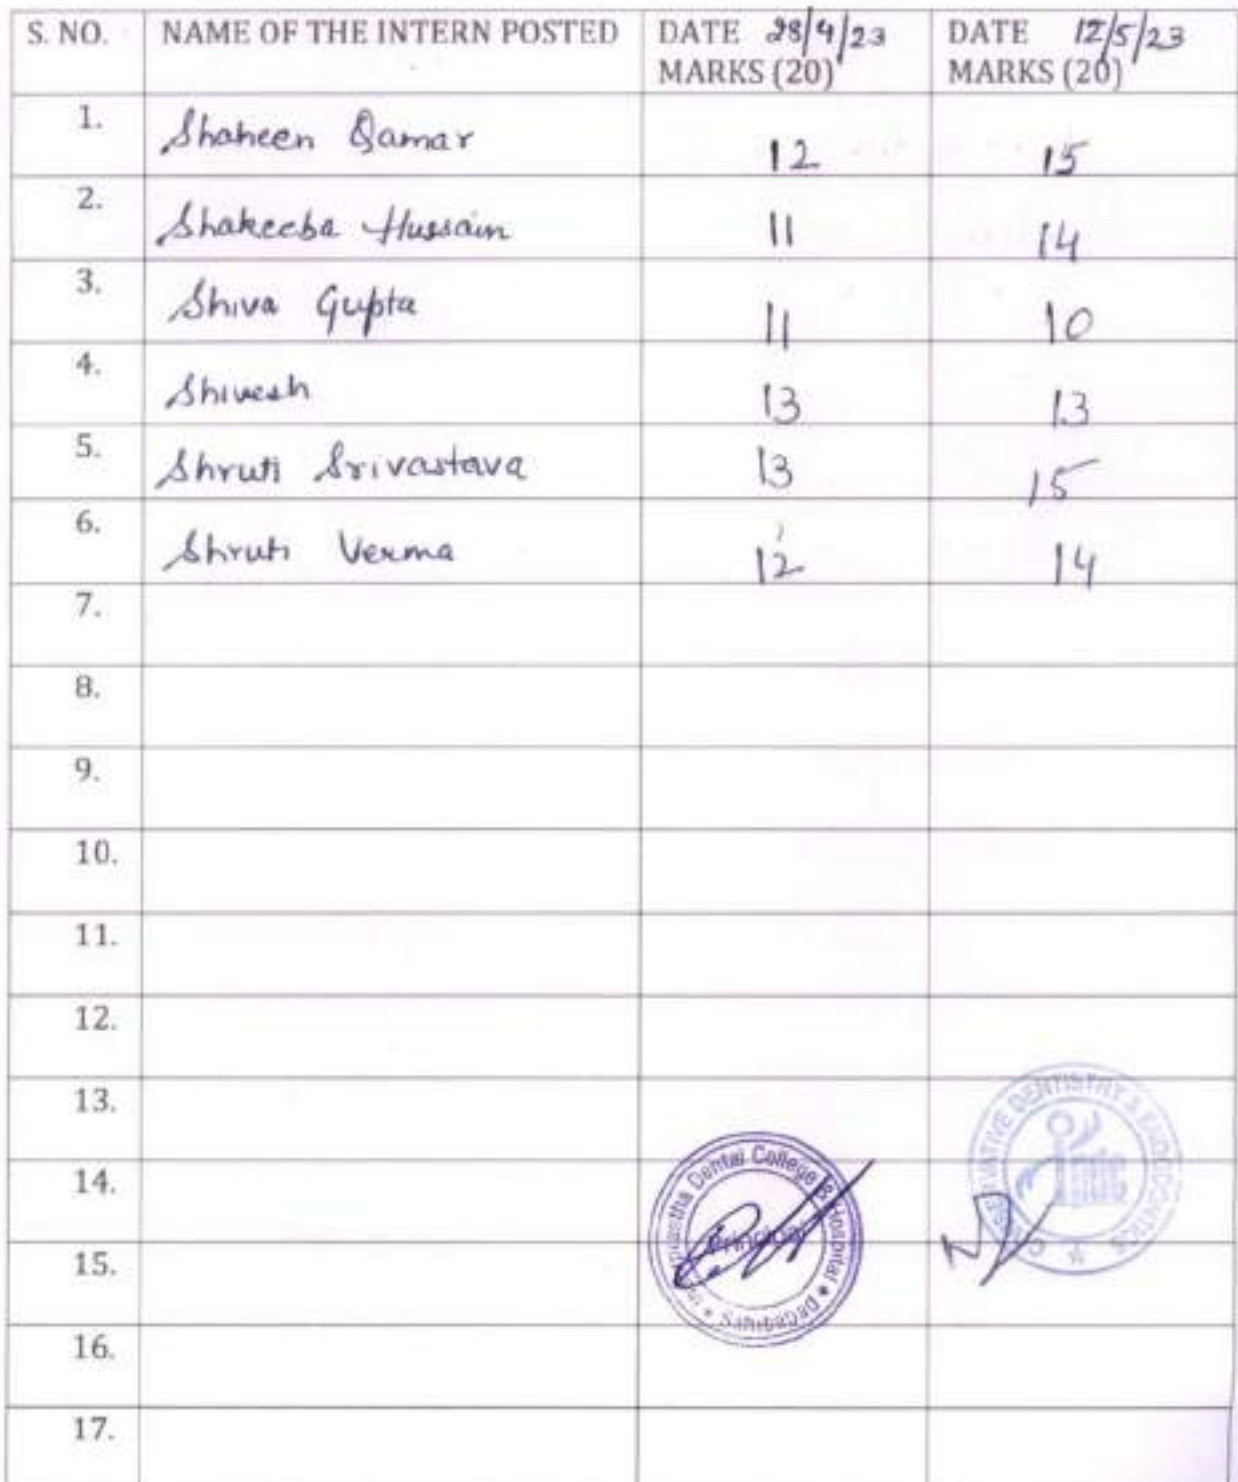 S. NO. NAME OF THE INTERN POSTED DATE 28/4/23 DATE 12/5/23
MARKS (20) MARKS (20)
1. Shaheen Qamar 12 15
2. Shakeeba Hussain 11 14
3. Shiva Gupta 11 10
4. Shivesh 13 13
5. Shruti Srivastava 13 15
6. Shruti Verma 12 14
7.
8.
9.
10.
11.
12.
13.
14.
15.
16.
17.
Dental College & Hospital
Principal
DENTISTRY & ENDODONTICS